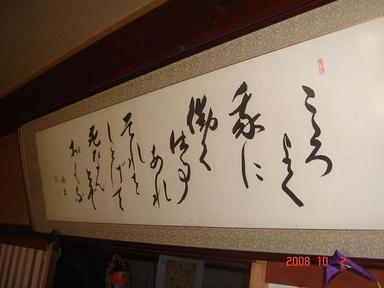 こころ
よく
我に
働く
仕事
あれ
それを
しとげて
死なんと
おもふ
2008 10 2